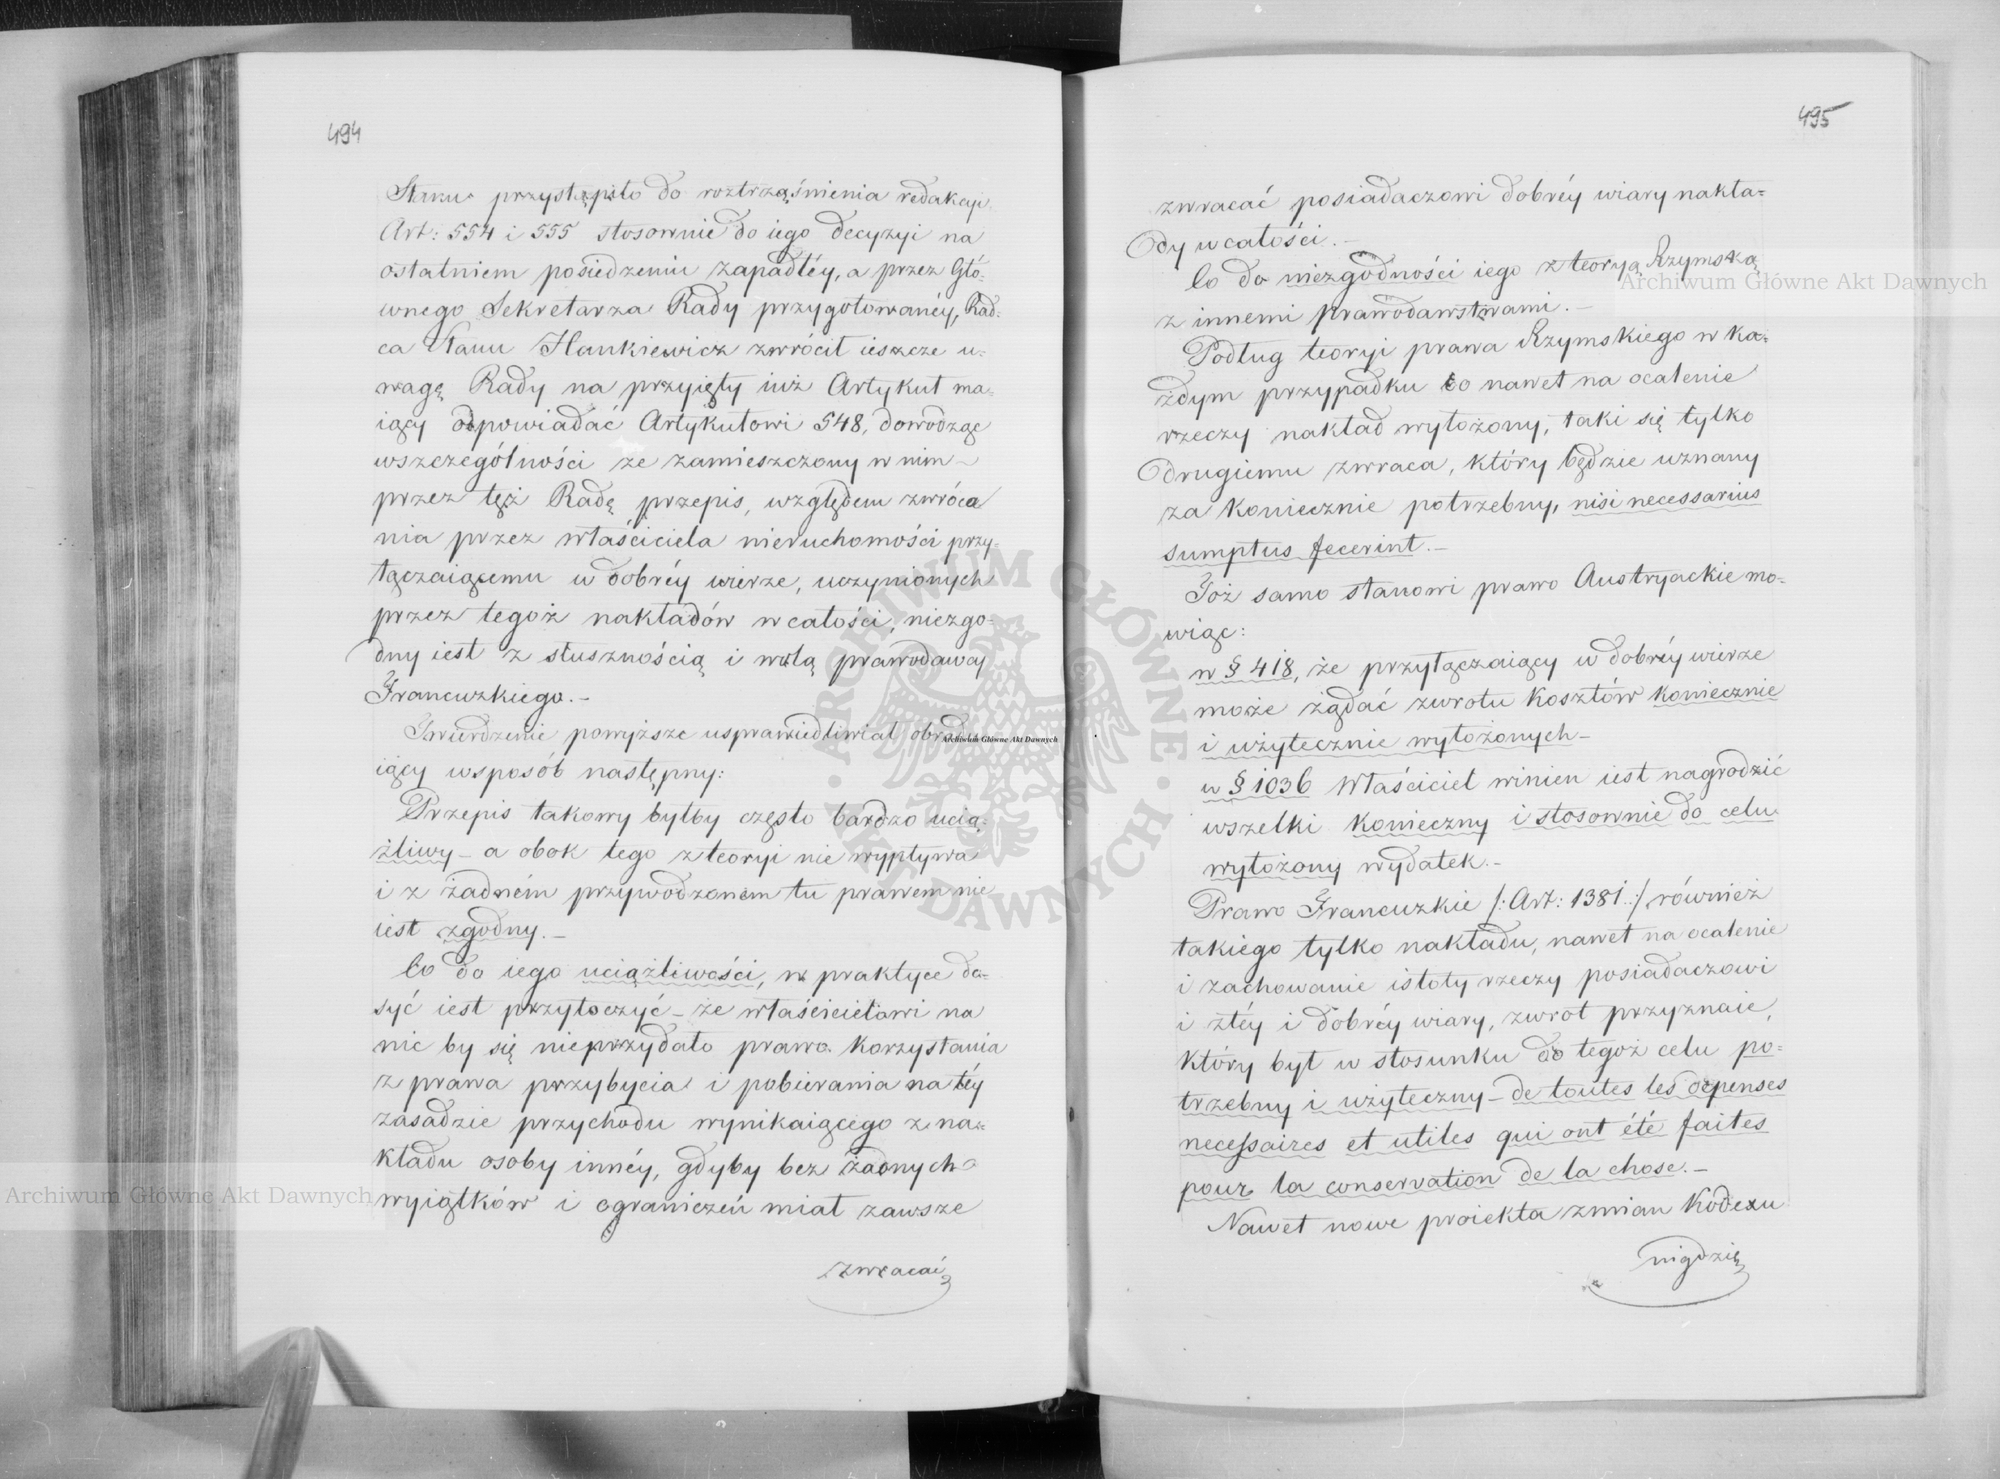 494
Stanu przystąpiło do roztrząśnienia redakcyi
Art: 554 i 555 stosownie do iego decyzyi na
ostatniem posiedzeniu zapadłéy, a przez Głó-
wnego Sekretarza Rady przygotowanéy, Rad-
ca Stanu Hankiewicz zwrócił ieszcze u-
wagę Rady na przyięty iuż Artykuł ma-
iący odpowiadać Artykułowi 548, dowodząc
wszczególności że zamieszczony w nim
przez tęż Radę przepis, względem zwróca
nia przez właściciela nieruchomości przy-
łączaiącemu w dobréy wierze, uczynionych
przez tegoż nakładów w całości, niezgo-
dny iest z słusznością i wolą prawodawcy
Francuzkiego.-
Twierdzenie powyższe usprawiedliwiał obradu
iący wsposób następny:
Przepis takowy byłby często bardzo ucią-
żliwy - a obok tego z teoryi nie wypływa
i z żadném przywodzonem tu prawem nie
iest zgodny.-
Co do iego uciążliwości, w praktyce do-
syć iest przytoczyć - że właścicielowi na
nic by się nieprzydało prawo korzystania
z prawa przybycia i pobierania na téy
zasadzie przychodu wynikaiącego z na-
kładu osoby innéy, gdyby bez żadnych
wyiątków i ograniczeń miał zawsze
zwracać
495
zwracać posiadaczowi dobréy wiary nakła-
dy w całości.-
Co do niezgodności iego z teoryą Rzymską
z innemi prawodawstwami.-
Podług teoryi prawa Rzymskiego w ka-
żdym przypadku co nawet na ocalenie
rzeczy nakład wyłożony, taki się tylko
drugiemu zwraca, który będzie uznany
za koniecznie potrzebny, nisi necessarius
sumptus fecerint.-
Toż samo stanowi prawo Austryackie mo-
wiąc:
w § 418, że przyłączaiący w dobréy wierze
może żądać zwrotu kosztów koniecznie
i użytecznie wyłożonych-
w § 1036 Właściciel winien iest nagrodzić
wszelki konieczny i stosownie do celu
wyłożony wydatek.-
Prawo Francuzkie /: Art: 1381 :/ również
takiego tylko nakładu, nawet na ocalenie
i zachowanie istoty rzeczy posiadaczowi
i złéy i dobréy wiary, zwrot przyznaie,
który był w stosunku do tegoż celu po-
trzebny i użyteczny - de toutes les depenses
necessaires et utiles qui ont été faites
pour la conservation de la chose.-
Nawet nowe proiekta zmian Kodexu
nigdzie
Archiwum Główne Akt Dawnych
Archiwum Główne Akt Dawnych
Archiwum Główne Akt Dawnych
ARCHIWUM GŁÓWNE AKT DAWNYCH